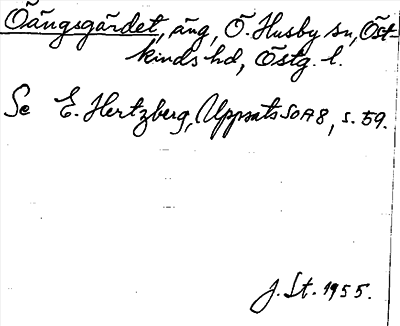 Öängsgärdet, äng, Ö. Husby sn, Öst-
kinds hd, Östg. l.
Se E. Hertzberg, Uppsats SOA 8, s. 59.
J. St. 1955.